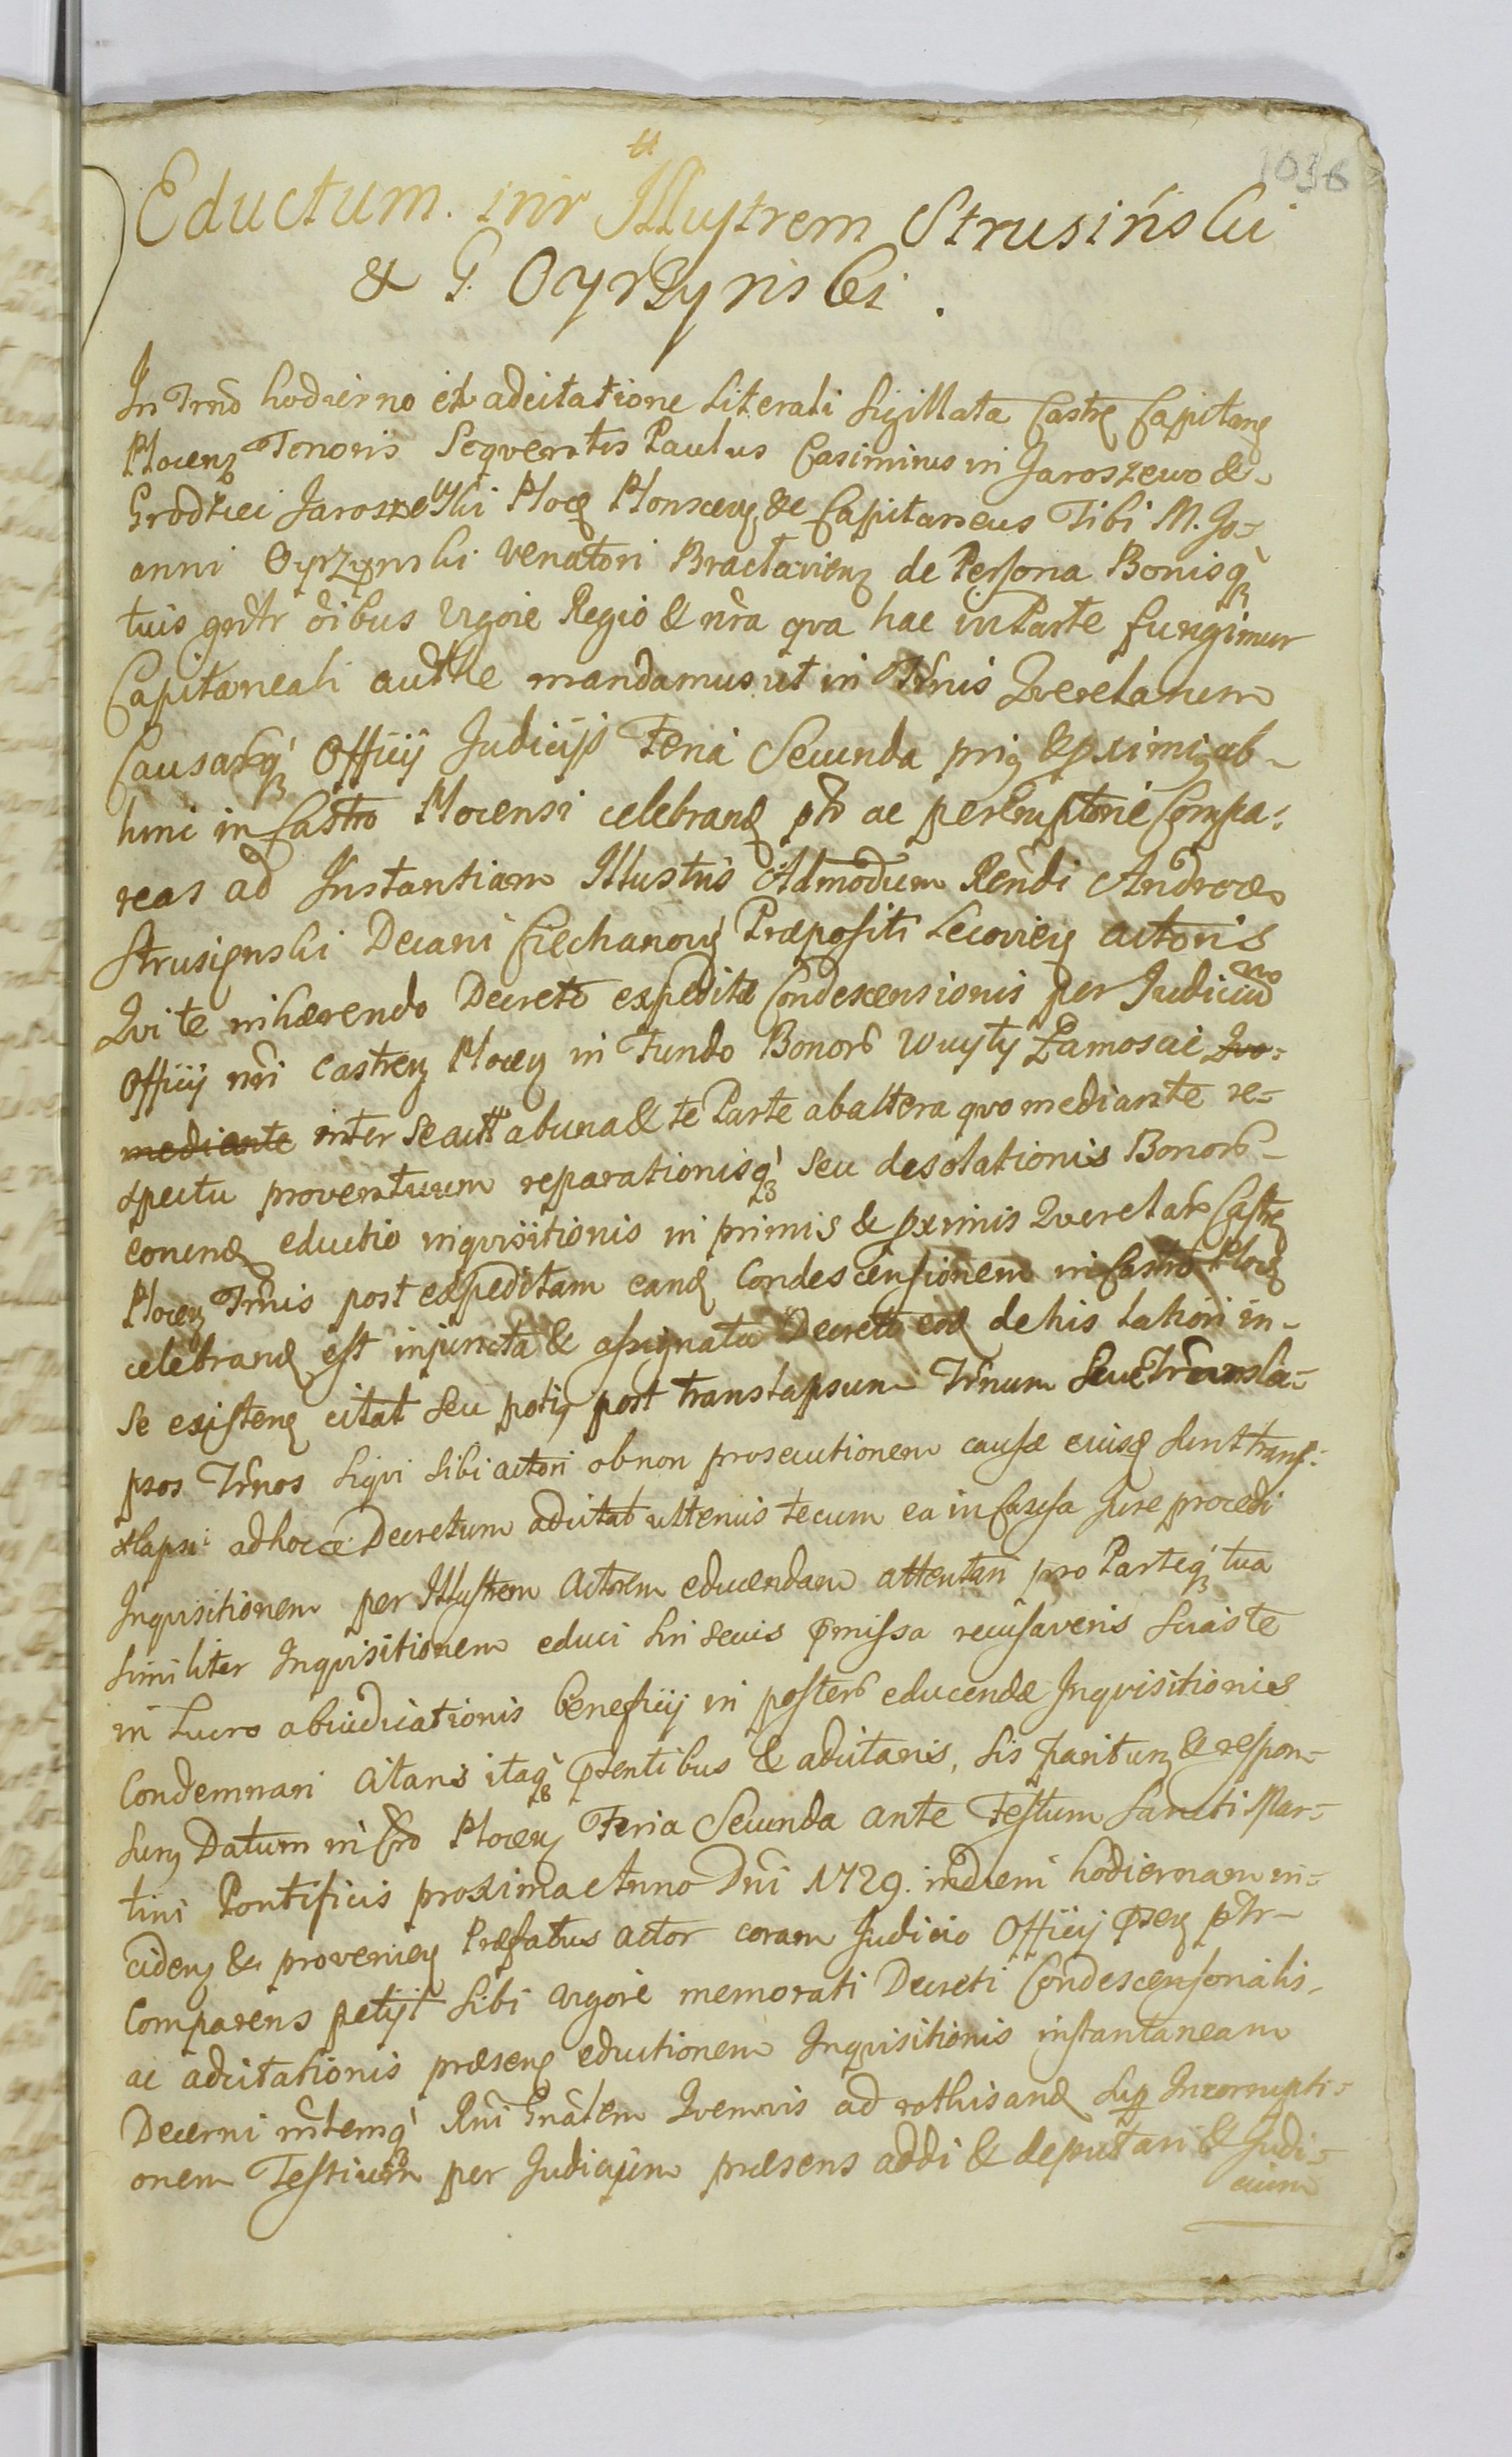 1036
Eductum. intr Illustrem Strusiński
& G. Oyrzynski.
In Trnõ hodierno ex adcitatione Literali Sigillata Castrę Capitanę
Plocenz Tenoris Seqventis Paulus Casimirus in Jaroszewo &
Grodziei Jaroszewski Plocę Plonscenz &c Capitaneus Tibi M. Jo-
anni Oyrzynski Venatori Bractavienz de Persona Bonisq
tuis gnr̃tr õibus Vigore Regio & nr̃a qva hac in Parte fungimur
Capitaneali autthe mandamus ut in Tr̃nis Qverelarum
Causarq Officy Judicijs Feria Secunda prig & pximig ab-
hinc in Castro Plocensi celebranę ptr ac peremptorie Compa-
reas ad Instantiam Illustris Admodum Rend̃i Andreæ
Strusienski Decani Ciechanovię Præpositi Lecovieę actoris
Qvi te inhærendo Decreto expeditæ Condescensionis per Judiciũ
Officij nr̃i Castrenz Plocenz in Fundo Bonor Wuyty Zamoscie Qvo-
mediante inter Se actt ab una & te Parte ab altera qvo mediante re-
spectu proventuum reparationisq Seu desolationis Bonor
eorunę eductio inqvisitionis in primis & pximis Qverelar Castrę
Plocenz Tr̃nis post expeditam eanę Condescensionem in Castro Plocę
celebranę est injuncta & assignata Decreto eoę de his Latiori in
Se existenę citat Seu potig post translapsum Tr̃num Seu Transla-
psos Tr̃nos Siqvi Sibi actori ob non prosecutionem causæ eiusę Sunt trans-
lapsi ad hocce Decretum adcitat ultenus tecum ea in Causa Jure procedi
Inqvisitionem per Illustrem Actorem educendam attentari pro Parteq tua
Similiter Inqvisitionem educi Sin Secus pmissa recusaveris Sciaste
in Lucro abiudicationis beneficij in poster educendæ Inqvisitionis
Condemnari Citans itaq psentibus & adcitaris, Sis pariturz & respon-
surz Datum in Cro Plocenz Feria Secunda ante Festum Sancti Mar-
tini Pontificis proxima Anno Dni 1729. in diem hodiernam in-
cidenz & provenienz Præfatus actor coram Judicio Officij psenz ptr
Comparens petijt Sibi Vigore memorati Decreti Condescensorialis
ac adcitationis præsenę eductionem Inqvisitionis instantaneam
Decerni mr̃temq Rni Gnãlem Qvemvis ad rothisanę Sup Incorrupti-
onem Testium per Judicium præsens addi & deputari & Judi-
cium